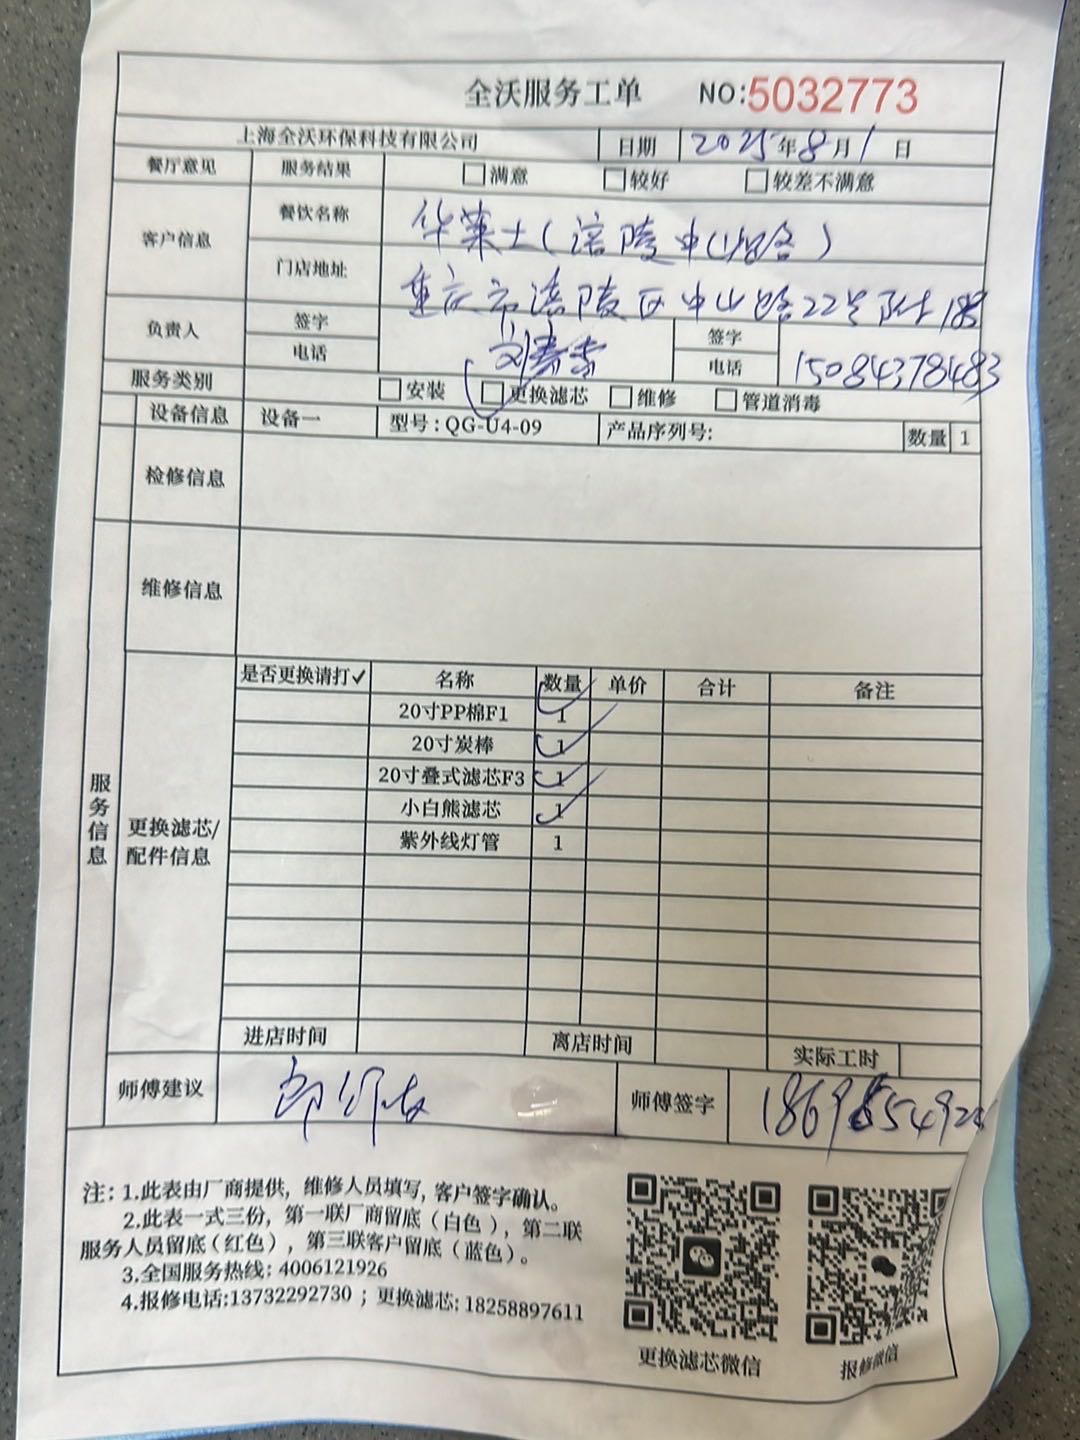 全沃服务工单 NO:5032773
上海全沃环保科技有限公司 日期 2025年8月1日
餐厅意见 服务结果 □满意 □较好 □较差不满意
客户信息 餐饮名称 华莱士(涪陵中山路)
门店地址 重庆市涪陵区中山路22号附
负责人 签字 签字
电话 电话 15084378483
服务类别 □安装 □更换滤芯 □维修 □管道消毒
设备信息 设备一 型号:QG-U4-09 产品序列号: 数量 1
检修信息
维修信息
服务信息
更换滤芯/配件信息
是否更换请打✓ 名称 数量 单价 合计 备注
20寸PP棉F1 1
20寸炭棒 1
20寸叠式滤芯F3 1
小白熊滤芯 1
紫外线灯管 1
进店时间 离店时间 实际工时
师傅建议 师傅签字
注:1.此表由厂商提供,维修人员填写,客户签字确认。
2.此表一式三份,第一联厂商留底(白色),第二联
服务人员留底(红色),第三联客户留底(蓝色)。
3.全国服务热线:4006121926
4.报修电话:13732292730;更换滤芯:18258897611
更换滤芯微信 报修微信